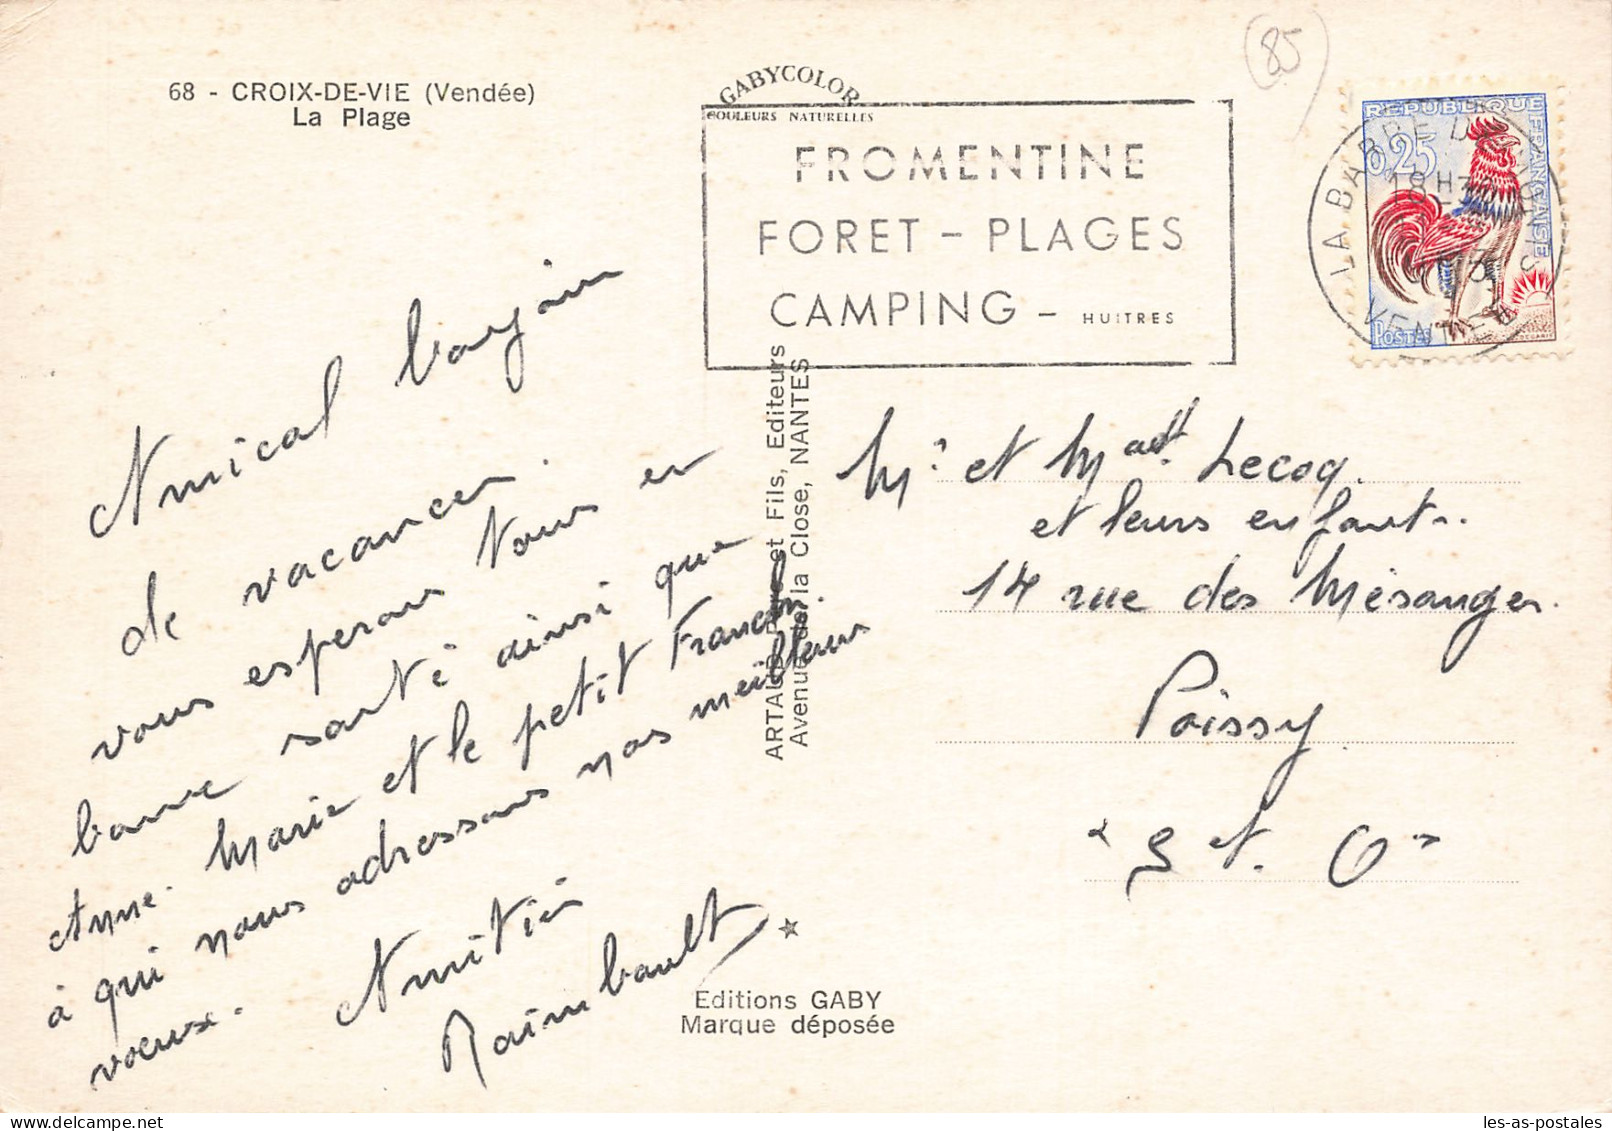 68 - CROIX-DE-VIE (Vendée)
La Plage
GABYCOLOR
COULEURS NATURELLES
FROMENTINE
FORET - PLAGES
CAMPING - HUITRES
85
REPUBLIQUE FRANÇAISE
0,25
POSTES
LA BARRE DE MONTS
18 H30
VENDEE
Amical bonjour
de vacances.
vous esperons tous en
bonne santé ainsi que
Anne-Marie et le petit Franck.
à qui nous adressons nos meilleurs
voeux. Amitiés
Raimbault
ARTAUD Père et Fils, Editeurs
Avenue de la Close, NANTES
Editions GABY
Marque déposée
Mr et Mad. Lecoq.
et leurs enfants.
14 rue des Mésanges.
Poissy
"S et. O"
les-as-postales
www.delcampe.net